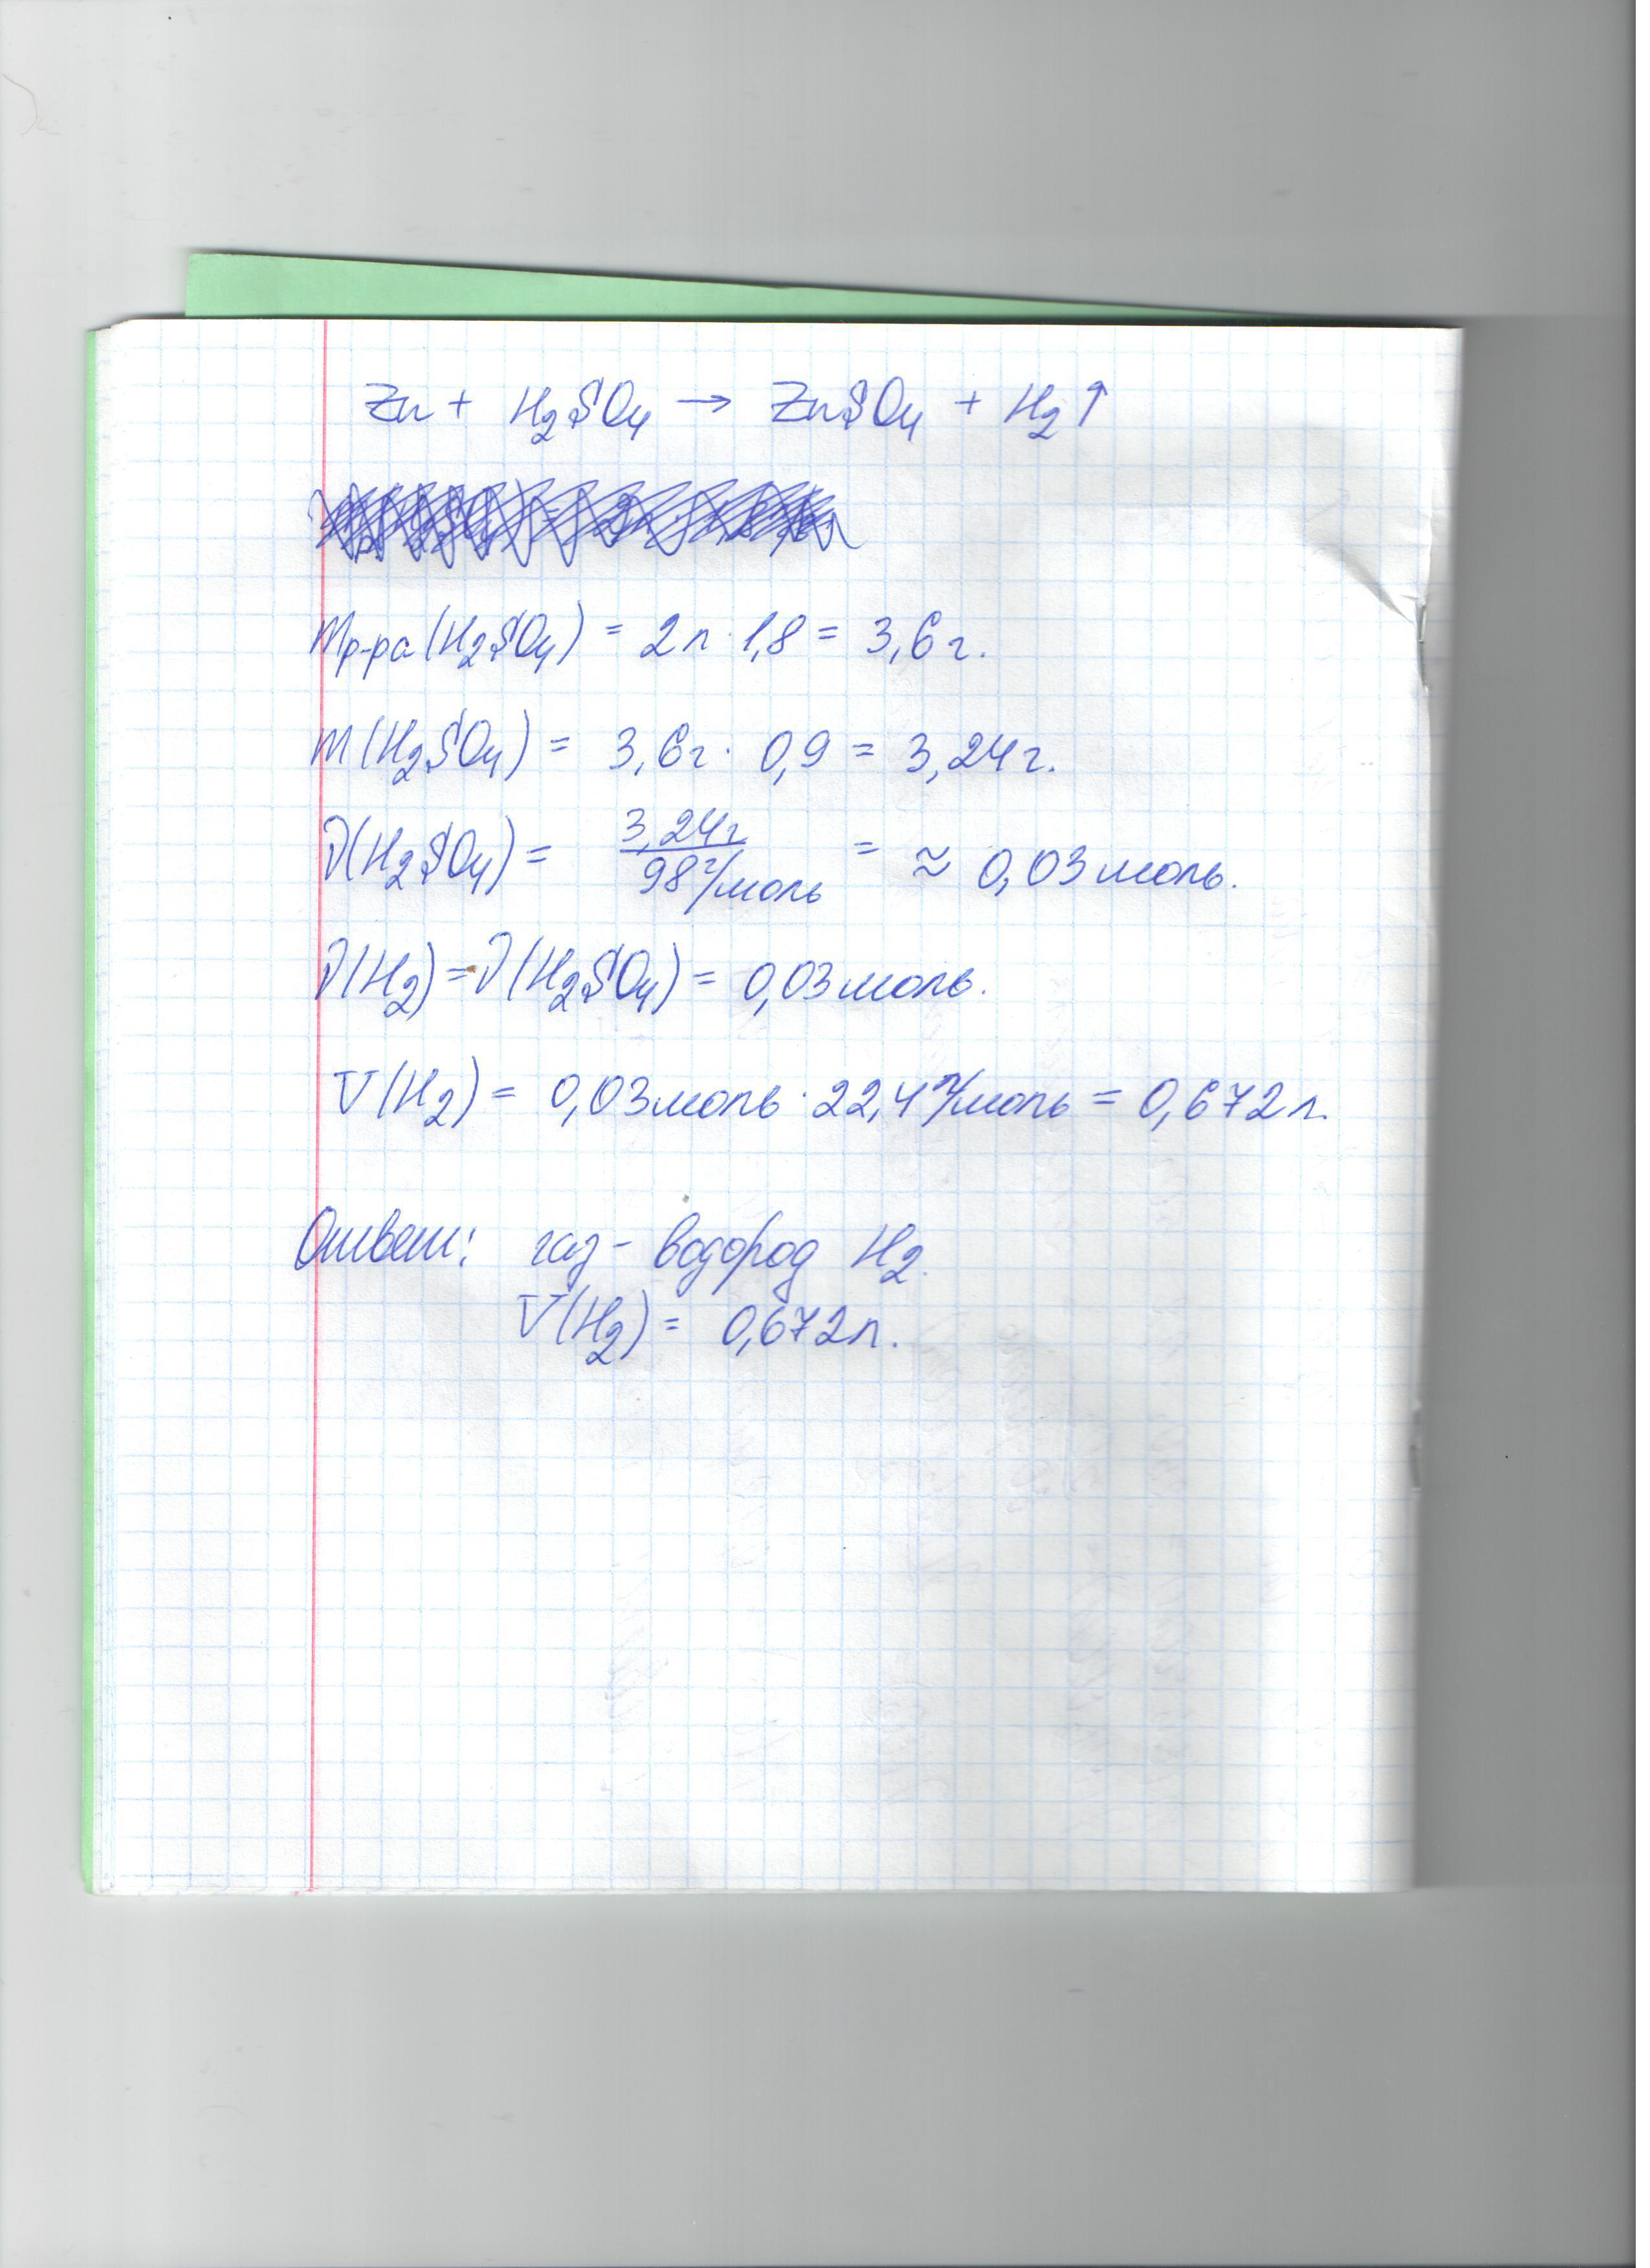 Zn + H₂SO₄ → ZnSO₄ + H₂↑
mр-ра(H₂SO₄) = 2л · 1,8 = 3,6г.
m(H₂SO₄) = 3,6г · 0,9 = 3,24г.
ν(H₂SO₄) = 3,24г / 98г/моль = ≈ 0,03моль.
ν(H₂) = ν(H₂SO₄) = 0,03моль.
V(H₂) = 0,03моль · 22,4л/моль = 0,672л.
Ответ: газ - водород H₂.
V(H₂) = 0,672л.